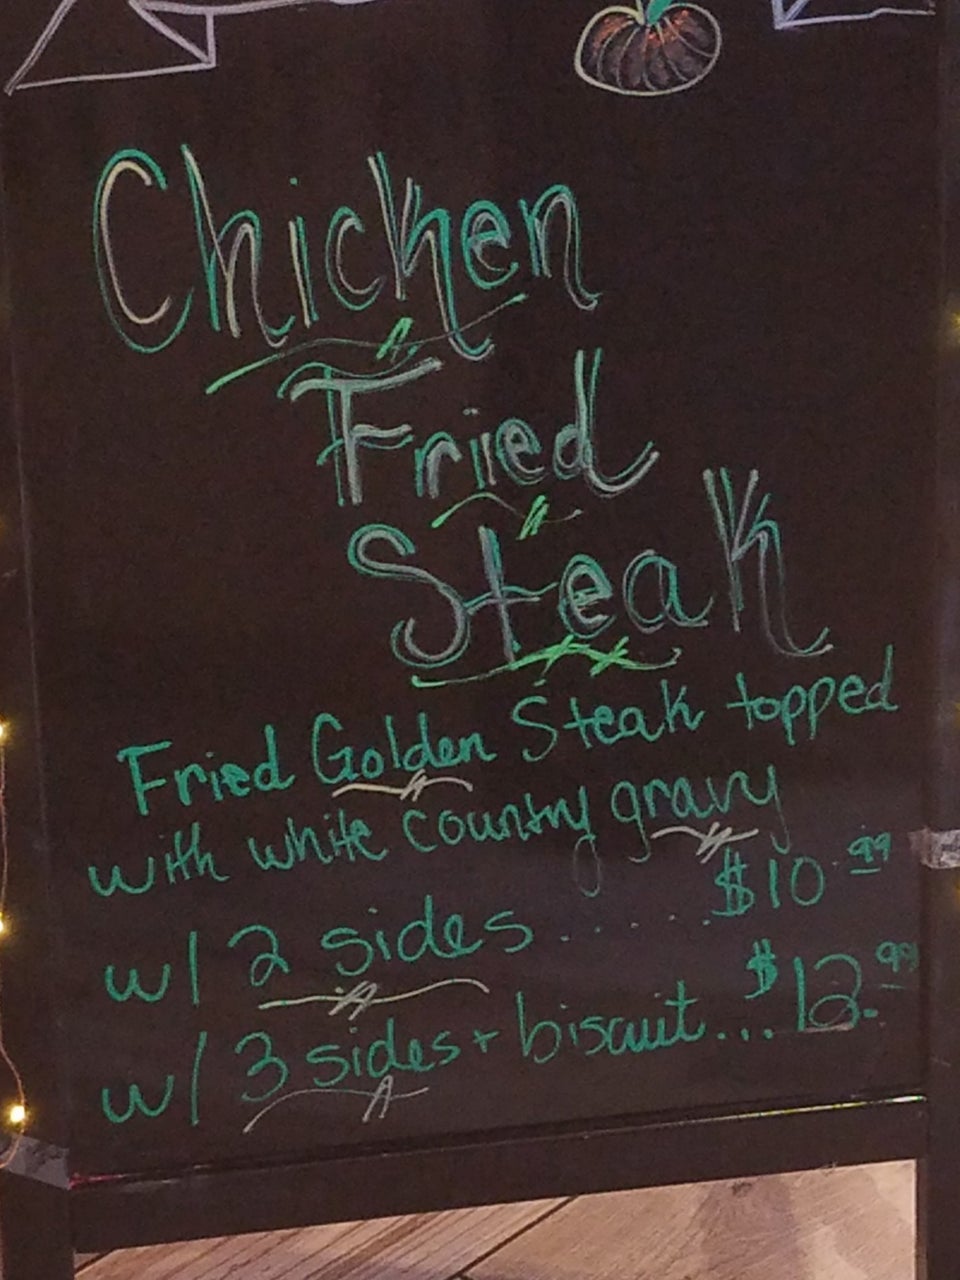 Chicken
Fried
Steak
Fried Golden Steak topped
with white country gravy
w/ 2 sides ...... $10.99
w/ 3 sides + biscuit... $12.99